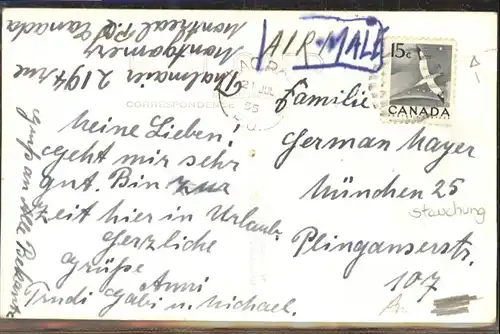 Thalmair 2194 rue
Montgomery
Montreal P.Q.
Canada
AIR MALE
21 JUL
55
CORRESPONDENCE
15c
CANADA
Meine Lieben!
Geht mir sehr
gut. Bin zur
Zeit hier in Urlaub.
Herzliche
Grüße Anni
Trudi Gabi u. Michael.
Gruß an Alle Bekante
Familie
German Mayer
München 25
stauchung
Plinganserstr.
107